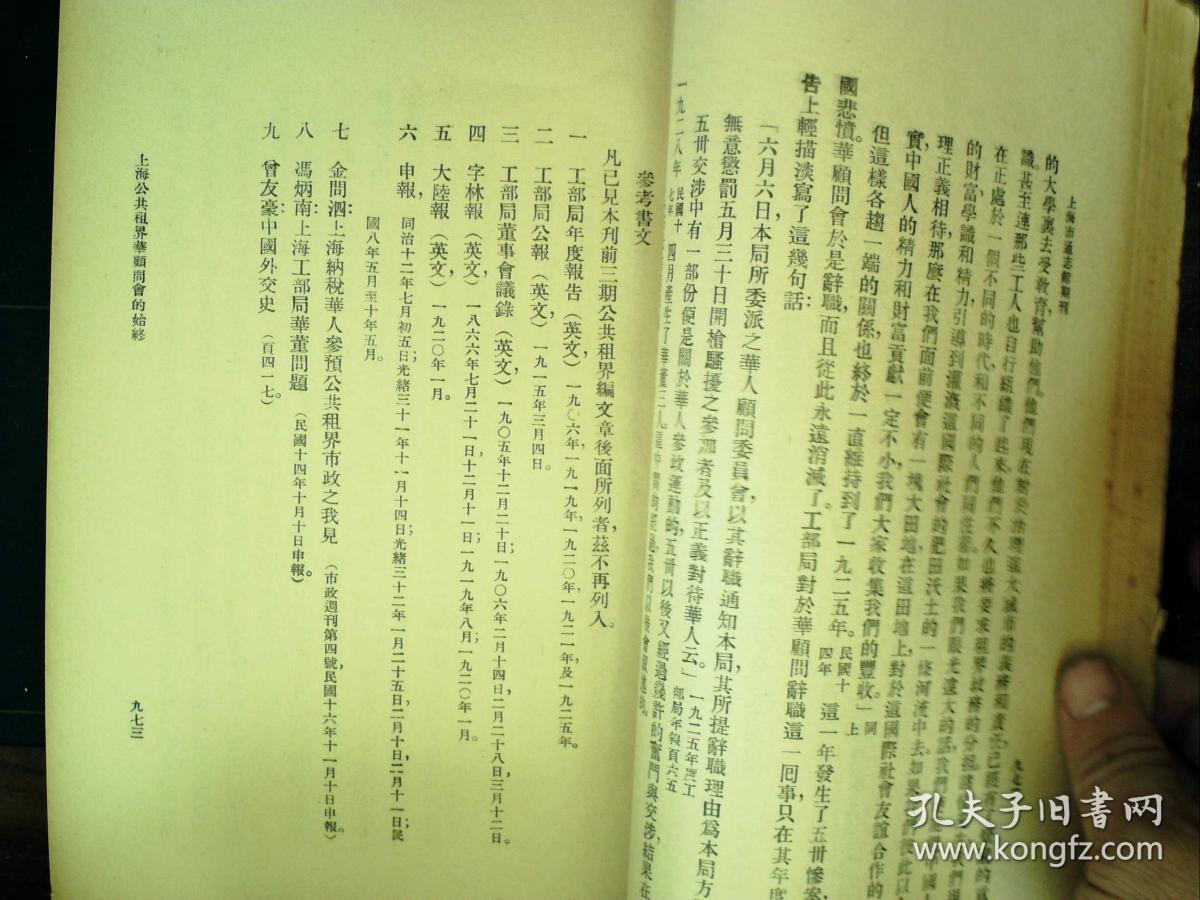 上海市通志館期刊
的大學裏去受教育幫助他們。他們現在對於治理這大城市的義務和責任已經有
識甚至連那些工人也自行組織了起來他們不久也將要求租界政務的分担
在正處於一個不同的時代和不同的人們同住着如果我們眼光遠大的話我們
的財富學識和精力引導到灌漑這國際社會的肥田沃土的一條河流中去如果
理正義相待那麼在我們面前便會有一塊大田地在這田地上對於這國際社會友誼合作的
實中國人的精力和財富貢獻一定不小我們大家收集我們的豐收。」同上
但這樣各趨一端的關係也終於一直維持到了一九二五年。民國十四年 這一年發生了五卅慘案,
國悲憤。華顧問會於是辭職,而且從此永遠消滅了。工部局對於華顧問辭職這一囘事,只在其年度
告上輕描淡寫了這幾句話:
「六月六日,本局所委派之華人顧問委員會,以其辭職通知本局,其所提辭職理由爲本局方
無意懲罰五月三十日開槍騷擾之參加者及以正義對待華人云。」一九二五年度工部局年報頁六五
五卅交涉中有一部份便是關於華人參政運動的,五卅以後又經過幾許的奮鬥與交涉結果在
一九二八年 民國十七年 四月產生了華董三人,
參考書文
凡已見本刊前三期公共租界編文章後面所列者,茲不再列入。
一 工部局年度報告(英文),一九〇六年,一九一九年,一九二〇年,一九二一年及一九二五年。
二 工部局公報(英文),一九一五年三月四日。
三 工部局董事會議錄(英文),一九〇五年十二月二十日;一九〇六年二月十四日,二月二十八日,三月十二日。
四 字林報(英文),一八六六年七月二十一日,十二月十一日;一九一九年八月;一九二〇年一月。
五 大陸報(英文),一九二〇年一月。
六 申報,同治十二年七月初五日;光緒三十一年十一月十四日;光緒三十二年一月二十五日,二月十日,二月十一日;民
國八年五月至十年五月。
七 金問泗:上海納稅華人參預公共租界市政之我見(市政週刊第四號,民國十六年十一月十日申報。)
八 馮炳南:上海工部局華董問題(民國十四年十月十日申報。)
九 曾友豪:中國外交史(頁四一七。)
上海公共租界華顧問會的始終
九七三
孔夫子旧書网
kongfz.com